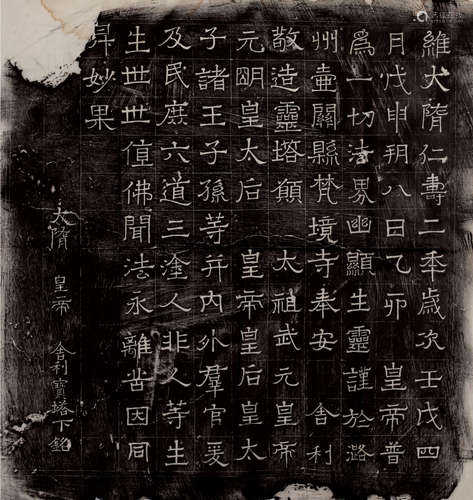 維大隋仁壽二年歲次壬戌四
月戊申朔八日乙卯 皇帝普
為一切法界幽顯生靈謹於潞
州壷關縣梵境寺奉安 舍利
敬造靈塔願 太祖武元皇帝
元明皇太后 皇帝皇后皇太
子諸王子孫等并內外羣官爰
及民庶六道三塗人非人等生
生世世值佛聞法永離苦因同
昇妙果
大隋 皇帝 舍利寶塔下銘